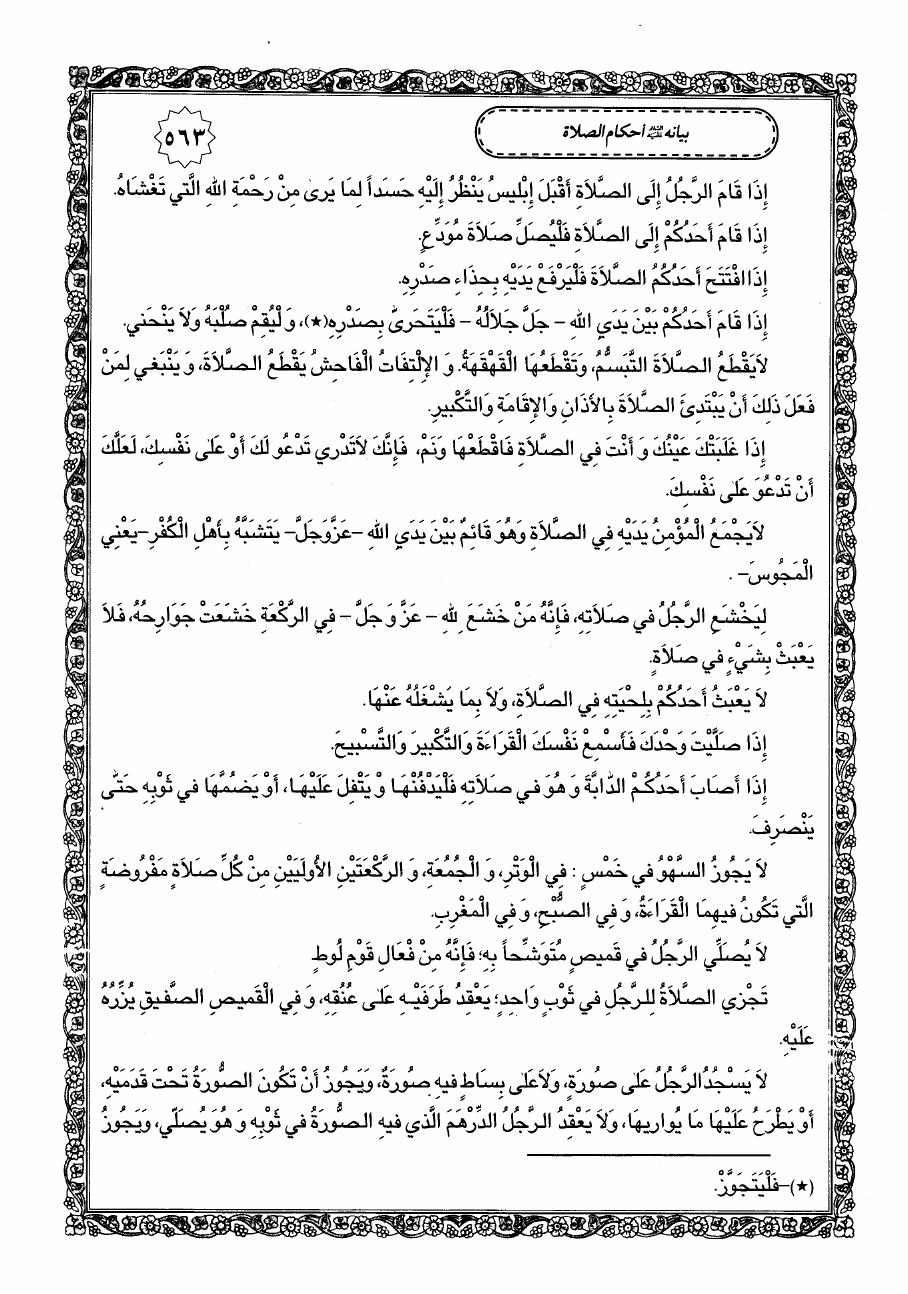 بيانه عليه السلام أحكام الصلاة
٥٦٣
إِذَا قَامَ الرَّجُلُ إِلَى الصَّلاَةِ أَقْبَلَ إِبْليسُ يَنْظُرُ إِلَيْهِ حَسَداً لِمَا يَرىٰ مِنْ رَحْمَةِ اللهِ الَّتي تَغْشَاهُ.
إِذَا قَامَ أَحَدُكُمْ إِلَى الصَّلاَةِ فَلْيُصَلِّ صَلاَةَ مُوَدِّعٍ.
إِذَا افْتَتَحَ أَحَدُكُمُ الصَّلاَةَ فَلْيَرْفَعْ يَدَيْهِ بِحِذَاءِ صَدْرِهِ.
إِذَا قَامَ أَحَدُكُمْ بَيْنَ يَدَيِ اللهِ – جَلَّ جَلاَلُهُ – فَلْيَتَحَرىّٰ بِصَدْرِهِ(★)، وَ لْيُقِمْ صُلْبَهُ وَلاَ يَنْحَني.
لاَيَقْطَعُ الصَّلاَةَ التَّبَسُّمُ، وَتَقْطَعُهَا الْقَهْقَهَةُ. وَ الإِلْتِفَاتُ الْفَاحِشُ يَقْطَعُ الصَّلاَةَ، وَ يَنْبَغي لِمَنْ
فَعَلَ ذَلِكَ أَنْ يَبْتَدِئَ الصَّلاَةَ بِالأَذَانِ وَالإِقَامَةِ وَالتَّكْبيرِ.
إِذَا غَلَبَتْكَ عَيْنُكَ وَ أَنْتَ فِي الصَّلاَةِ فَاقْطَعْهَا وَنَمْ، فَإِنَّكَ لاَتَدْري تَدْعُو لَكَ أَوْ عَلىٰ نَفْسِكَ، لَعَلَّكَ
أَنْ تَدْعُوَ عَلىٰ نَفْسِكَ.
لاَيَجْمَعُ الْمُؤْمِنُ يَدَيْهِ فِي الصَّلاَةِ وَهُوَ قَائِمٌ بَيْنَ يَدَيِ اللهِ –عَزَّوَجَلَّ– يَتَشَبَّهُ بِأَهْلِ الْكُفْرِ–يَعْنِي
الْمَجُوسَ– .
لِيَخْشَعِ الرَّجُلُ في صَلاَتِهِ، فَإِنَّهُ مَنْ خَشَعَ لِلهِ – عَزَّ وَ جَلَّ – فِي الرَّكْعَةِ خَشَعَتْ جَوَارِحُهُ، فَلاَ
يَعْبَثْ بِشَيْءٍ في صَلاَةٍ.
لاَ يَعْبَثُ أَحَدُكُمْ بِلِحْيَتِهِ فِي الصَّلاَةِ، وَلاَ بِمَا يَشْغَلُهُ عَنْهَا.
إِذَا صَلَّيْتَ وَحْدَكَ فَأَسْمِعْ نَفْسَكَ الْقَرَاءَةَ وَالتَّكْبيرَ وَالتَّسْبيحَ.
إِذَا أَصَابَ أَحَدَكُمْ الدَّابَّةَ وَ هُوَ في صَلاَتِهِ فَلْيَدْفُنْهَا وَ يَتْفِلَ عَلَيْهَا، أَوْ يَضُمَّهَا في ثَوْبِهِ حَتّٰى
يَنْصَرِفَ.
لاَ يَجُوزُ السَّهْوُ في خَمْسٍ : فِي الْوَتْرِ، وَ الْجُمُعَةِ، وَ الرَّكْعَتَيْنِ الأُولَيَيْنِ مِنْ كُلِّ صَلاَةٍ مَفْرُوضَةٍ
الَّتي تَكُونُ فيهِمَا الْقَرَاءَةُ، وَ فِي الصُّبْحِ، وَ فِي الْمَغْرِبِ.
لاَ يُصَلِّي الرَّجُلُ في قَميصٍ مُتَوَشِّحاً بِهِ؛ فَإِنَّهُ مِنْ فْعَالِ قَوْمِ لُوطٍ
تَجْزِي الصَّلاَةُ لِلرَّجُلِ في ثَوْبٍ وَاحِدٍ؛ يَعْقِدُ طَرَفَيْهِ عَلىٰ عُنُقِهِ، وَ فِي الْقَميصِ الصَّفيقِ يُزِّرُهُ
عَلَيْهِ.
لاَ يَسْجُدُ الرَّجُلُ عَلىٰ صُورَةٍ، وَلاَعَلىٰ بِسَاطٍ فيهِ صُورَةٌ، وَيَجُوزُ أَنْ تَكُونَ الصُّورَةُ تَحْتَ قَدَمَيْهِ،
أَوْ يَطْرَحُ عَلَيْهَا مَا يُواريهَا، وَلاَ يَعْقِدُ الرَّجُلُ الدِّرْهَمَ الَّذي فيهِ الصُّورَةُ في ثَوْبِهِ وَ هُوَ يُصَلّي، وَيَجُوزُ
(★)–فَلْيَتَجَوَّزْ.